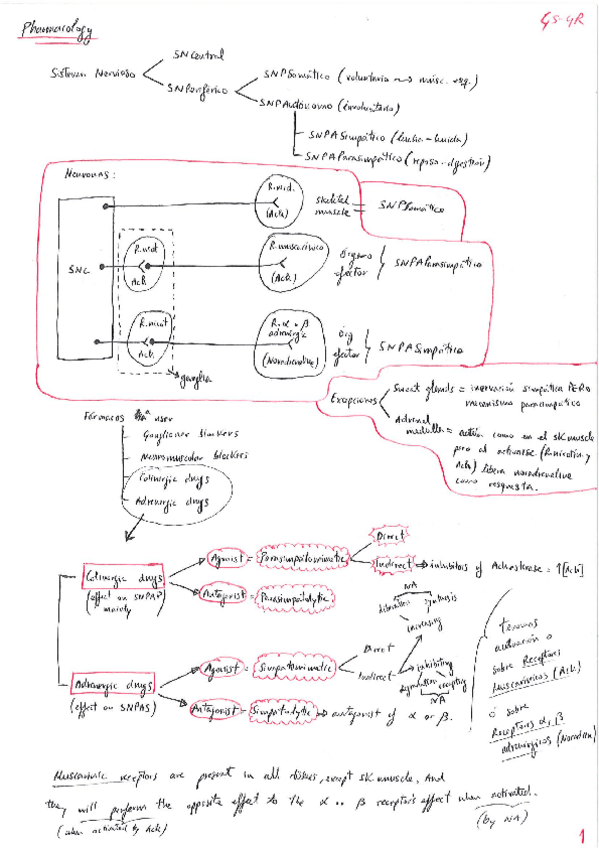 Pharmacology
SNCentral
Sistema Nervioso
SNPeriférico
SNPSomático (voluntario → músc. esq.)
SNPAutónomo (involuntario)
SNPASimpático (lucha-huida)
SNPAParasimpático (reposo-digestión)
Neuronas:
R.nicot.
(Ach)
skeletal
muscle = SNPSomático
SNC
R.nicot
Ach
R.muscarínico
(Ach)
órgano
efector
SNPAParasimpático
R.nicot
Ach
R. α o β
adrenérg.
(Noradrenaline)
órg
efector
SNPASimpático
ganglia
Excepciones
Sweat glands = inervación simpática PERO
mecanismo parasimpático
Adrenal
medulla = actúa como en el sk muscle
pero al activarse (R.nicotín. y
Ach) libera noradrenaline
como respuesta.
Fármacos
Ganglionar blockers
Neuromuscular blockers
Colinergic drugs
Adrenergic drugs
Colinergic drugs
(effect on SNPAP
mainly)
Agonist = Parasimpatomimetic
Direct
Indirect → inhibitors of Acholesterase = ↑[Ach]
Antagonist = Parasimpatolytic
NA
liberation
synthesis
increasing
Adrenergic drugs
(effect on SNPAS)
Agonist = Simpatomimetic
Direct
Indirect
inhibiting
degradation
recapting
NA
Antagonist = Simpatolytic → antagonist of α or β.
tenemos
actuación o
sobre Receptores
Muscarínicos (Ach)
ó sobre
Receptores α, β
adrenérgicos (Noradren)
Muscarinic receptors are present in all tissues, except sk muscle, And
they will perform the opposite effect to the α or β receptor's effect when activated.
(when activated by Ach)
(by NA)
1